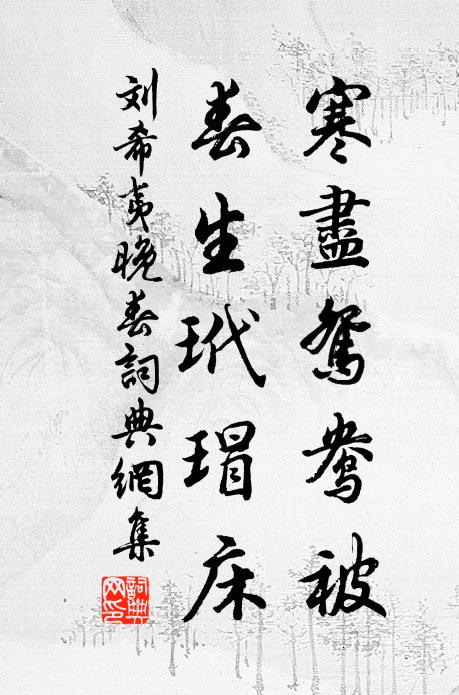 寒盡鴛鴦被
春生玳瑁床
刘希夷晚春詞典網集
詞典網印